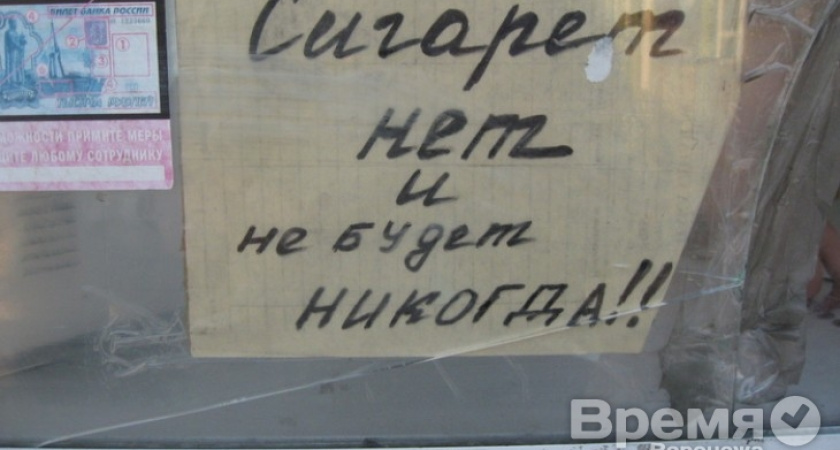 БИЛЕТ БАНКА РОССИИ
ТЫСЯЧА РУБЛЕЙ
ПРИМИТЕ МЕРЫ
ЛЮБОМУ СОТРУДНИКУ
Сигарет
нет
и
не будет
НИКОГДА!!
Время
Воронежа